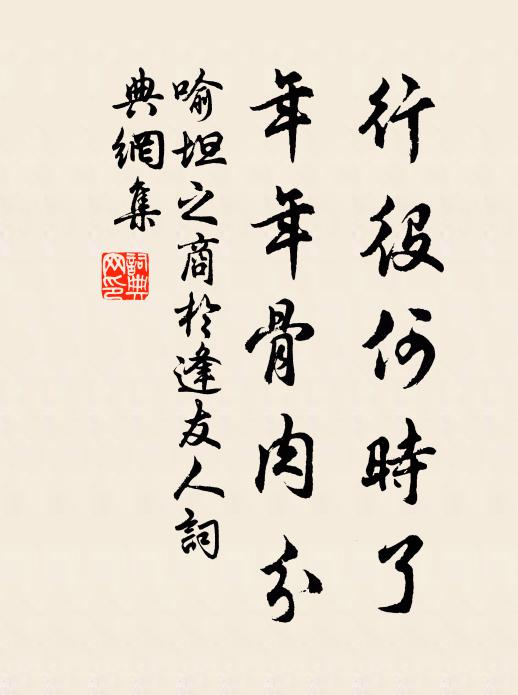 行役何時了
年年骨肉分
喻坦之商於逢友人詞
典網集
詞典
网印